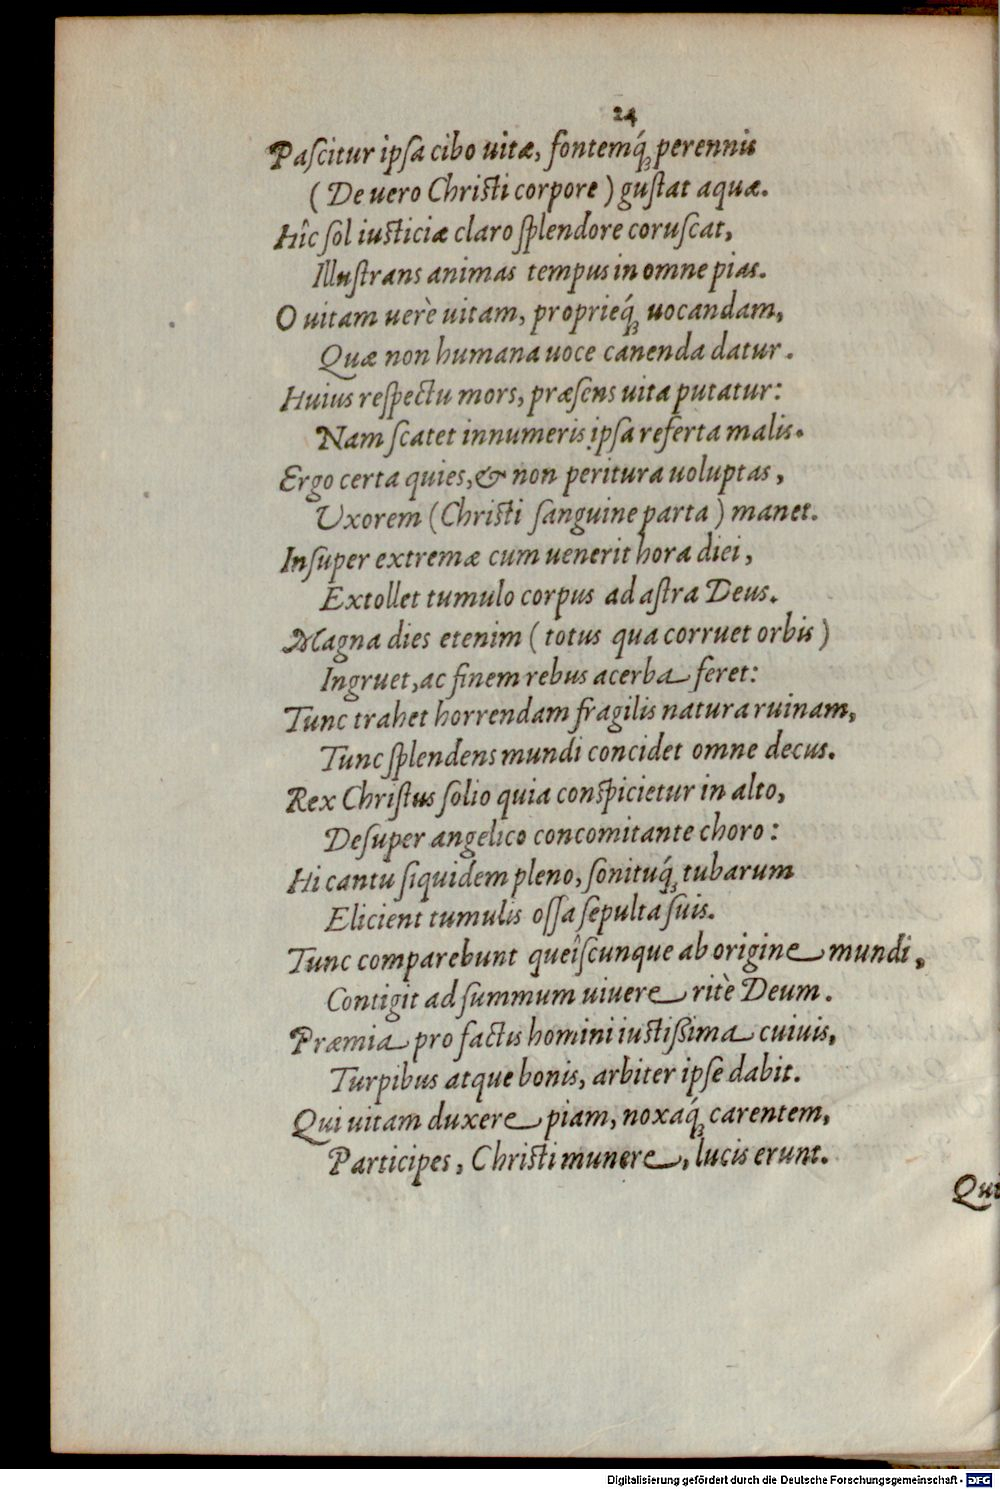 24
Paſcitur ipſa cibo uitæ, fontemq́ꝫ perennis
(De uero Chriſti corpore) guſtat aquæ.
Hîc ſol iuſticiæ claro ſplendore coruſcat,
Illuſtrans animas tempus in omne pias.
O uitam uerè uitam, proprieq́ꝫ uocandam,
Quæ non humana uoce canenda datur.
Huius reſpectu mors, præſens uita putatur:
Nam ſcatet innumeris ipſa referta malis.
Ergo certa quies, & non peritura uoluptas,
Uxorem (Chriſti ſanguine parta) manet.
Inſuper extremæ cum uenerit hora diei,
Extollet tumulo corpus ad aſtra Deus.
Magna dies etenim (totus qua corruet orbis)
Ingruet, ac finem rebus acerba feret:
Tunc trahet horrendam fragilis natura ruinam,
Tunc ſplendens mundi concidet omne decus.
Rex Chriſtus ſolio quia conſpicietur in alto,
Deſuper angelico concomitante choro:
Hi cantu ſiquidem pleno, ſonituq́ꝫ tubarum
Elicient tumulis oſſa ſepulta ſuis.
Tunc comparebunt queîſcunque ab origine mundi,
Contigit ad ſummum uiuere ritè Deum.
Præmia pro factis homini iuſtiſſima cuiuis,
Turpibus atque bonis, arbiter ipſe dabit.
Qui uitam duxere piam, noxaq́ꝫ carentem,
Participes, Chriſti munere, lucis erunt.
Qui
Digitalisierung gefördert durch die Deutsche Forschungsgemeinschaft - DFG